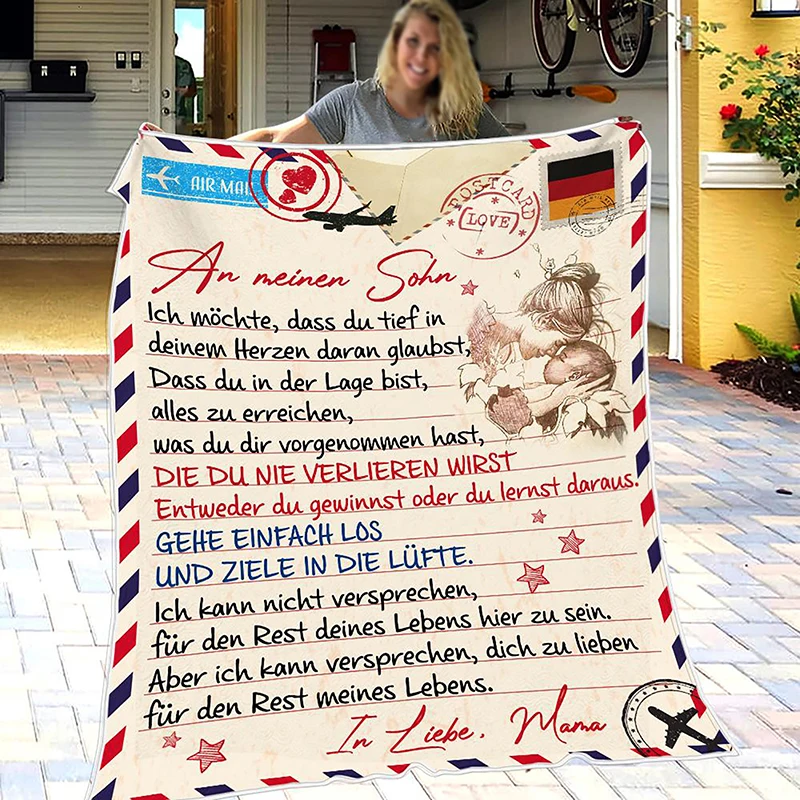 AIR MAIL
POSTCARD
LOVE
An meinen Sohn
Ich möchte, dass du tief in
deinem Herzen daran glaubst,
Dass du in der Lage bist,
alles zu erreichen,
was du dir vorgenommen hast,
DIE DU NIE VERLIEREN WIRST
Entweder du gewinnst oder du lernst daraus.
GEHE EINFACH LOS
UND ZIELE IN DIE LÜFTE.
Ich kann nicht versprechen,
für den Rest deines Lebens hier zu sein.
Aber ich kann versprechen, dich zu lieben
für den Rest meines Lebens.
In Liebe, Mama